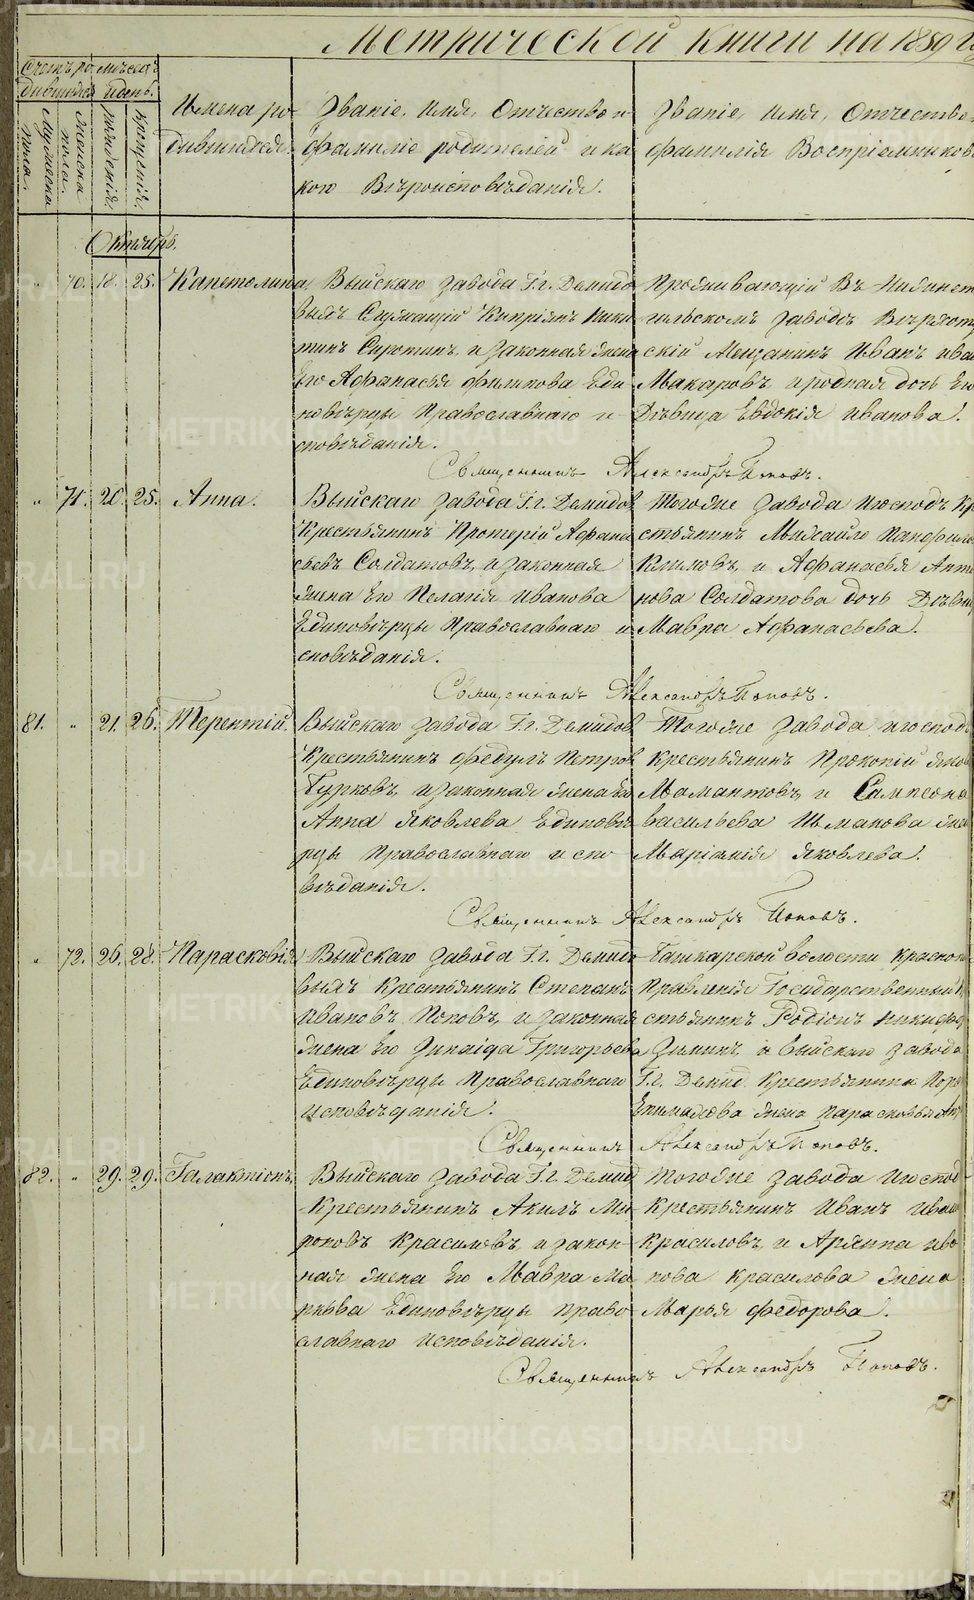 Метрической книги на 1859 го
Счетъ ро мѣсяцъ
дившихся и день.
Мужеска пола.
Женска пола.
рожденія.
крещенія.
Имена ро-
дившихся.
Званіе, имя, отчество и
фамиліе родителей и ка
кого вѣроисповѣданія.
Званіе, имя, отчество
фамилія воспріемников
Октябрь.
" 70. 18. 25. Капетолина
Выйскаго завода Г.г. Демидо
выхъ Служащій Кипріянъ Ники
тинъ Сиротинъ, и законная жена
Его Афанасья Филипова Еди
новѣрцы Православнаго и-
сповѣданія.
Проживающій въ Нижнет
гильскомъ заводѣ Верхот
скій Мещанинъ Иванъ Ива
Макаровъ и родная дочь Ег
Дѣвица Евдокія Иванова.
Священникъ Александръ Поповъ.
" 71. 20. 25. Анна.
Выйскаго завода Г.г. Демидов
Крестьянинъ Протерій Афана
сьевъ Солдатовъ, и законная
жена Его Пелагія Иванова
Единовѣрцы Православнаго и
сповѣданія.
Тогоже завода и господъ Кр
стьянинъ Михайло Панфило
Климовъ, и Афанасья Анто
нова Солдатова дочь Дѣвиц
Мавра Афанасьева.
Священникъ Александръ Поповъ.
81. " 21. 26. Терентій.
Выйскаго завода Г.г. Демидов
Крестьянинъ Федулъ Петров
Гурковъ, и законная жена Его
Анна Яковлева Единовѣ
рцы Православнаго испо
вѣданія.
Тогоже завода и господ
Крестьянинъ Прокопій Яков
Мамантовъ, и Самсона
Васильева Шманова жен
Маріамія Яковлева.
Священникъ Александръ Поповъ.
" 72. 26. 28. Парасковія
Выйскаго завода Г.г. Демидо
выхъ Крестьянинъ Степанъ
Ивановъ Поповъ, и законная
жена Его Зинаіда Григорьева
Единовѣрцы Православнаго
исповѣданія.
Башкарской волости Красно
Правленія Государственный К
стьянинъ Родіонъ Никифо
Зиминъ, и Выйскаго завода
Г.г. Демид. Крестьянина
жена Парасковья
Священникъ Александръ Поповъ.
82. " 29. 29. Галактіонъ
Выйскаго завода Г.г. Демид
Крестьянинъ Акилъ Ми-
роновъ Красиловъ, и закон-
ная жена Его Мавра Ма
ркѣва Единовѣрцы Право
славнаго исповѣданія.
Тогоже завода и господ
Крестьянинъ Иванъ Иван
Красиловъ, и Архипа Ива
нова Красилова жена
Марья Федорова.
Священникъ Александръ Поповъ.
METRIKI.GASO-URAL.RU